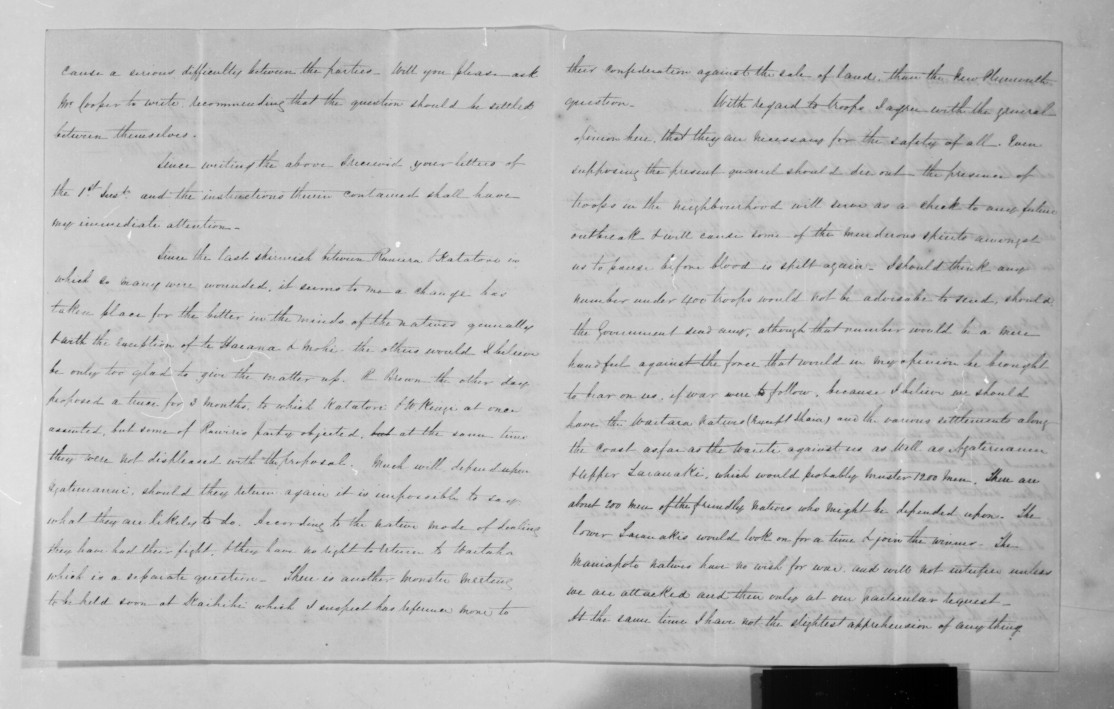 cause a serious difficulty between the parties - Will you please ask
Mr Cooper to write recommending that the question should be settled
between themselves.
Since writing the above I received your letters of
the 1st Inst. and the instructions therein contained shall have
my immediate attention -
Since the last skirmish between Rawiri & Katatore in
which so many were wounded, it seems to me a change has
taken place for the better in the minds of the natives generally
& with the exception of te Haeana & Mohi the others would I believe
be only too glad to give the matter up. R Brown the other day
proposed a truce for 3 months, to which Katatori & W Kingi at once
assented, but some of Rawiris party objected, but at the same time
they were not displeased with the proposal. Much will depend upon
Ngatiruanui, should they return again it is impossible to say
what they are likely to do. According to the native mode of dealing
they have had their fight, & they have no right to return to Waitaha
which is a separate question - There is another monster meeting
to be held soon at Kaihihi which I suspect has reference more to
their confederation against the sale of land, than the New Plymouth
question - With regard to troops I agree with the general
opinion here, that they are necessary for the safety of all. Even
supposing the present quarrel should die out - the presence of
troops in the neighbourhood will serve as a check to any future
outbreak & will cause some of the murderous spirits amongst
us to pause before blood is spilt again - I should think any
number under 400 troops would not be advisable to send, should
the Government send any, although that number would be a mere
handful against the force that would in my opinion be brought
to bear on us, if war were to follow, because I believe we should
have the Waitara Natives (except Ihaia) and the various settlements along
the coast as far as the Waiite against us as well as Ngatiruanui
& Upper Taranaki, which would probably muster 1200 men. There are
about 200 men of the friendly Natives who might be depended upon. The
lower Taranakis would look on for a time & join the winner - The
Maniapoto natives have no wish for war, and will not interfere unless
we are attacked and then only at our particular request -
At the same time I have not the slightest apprehension of any thing